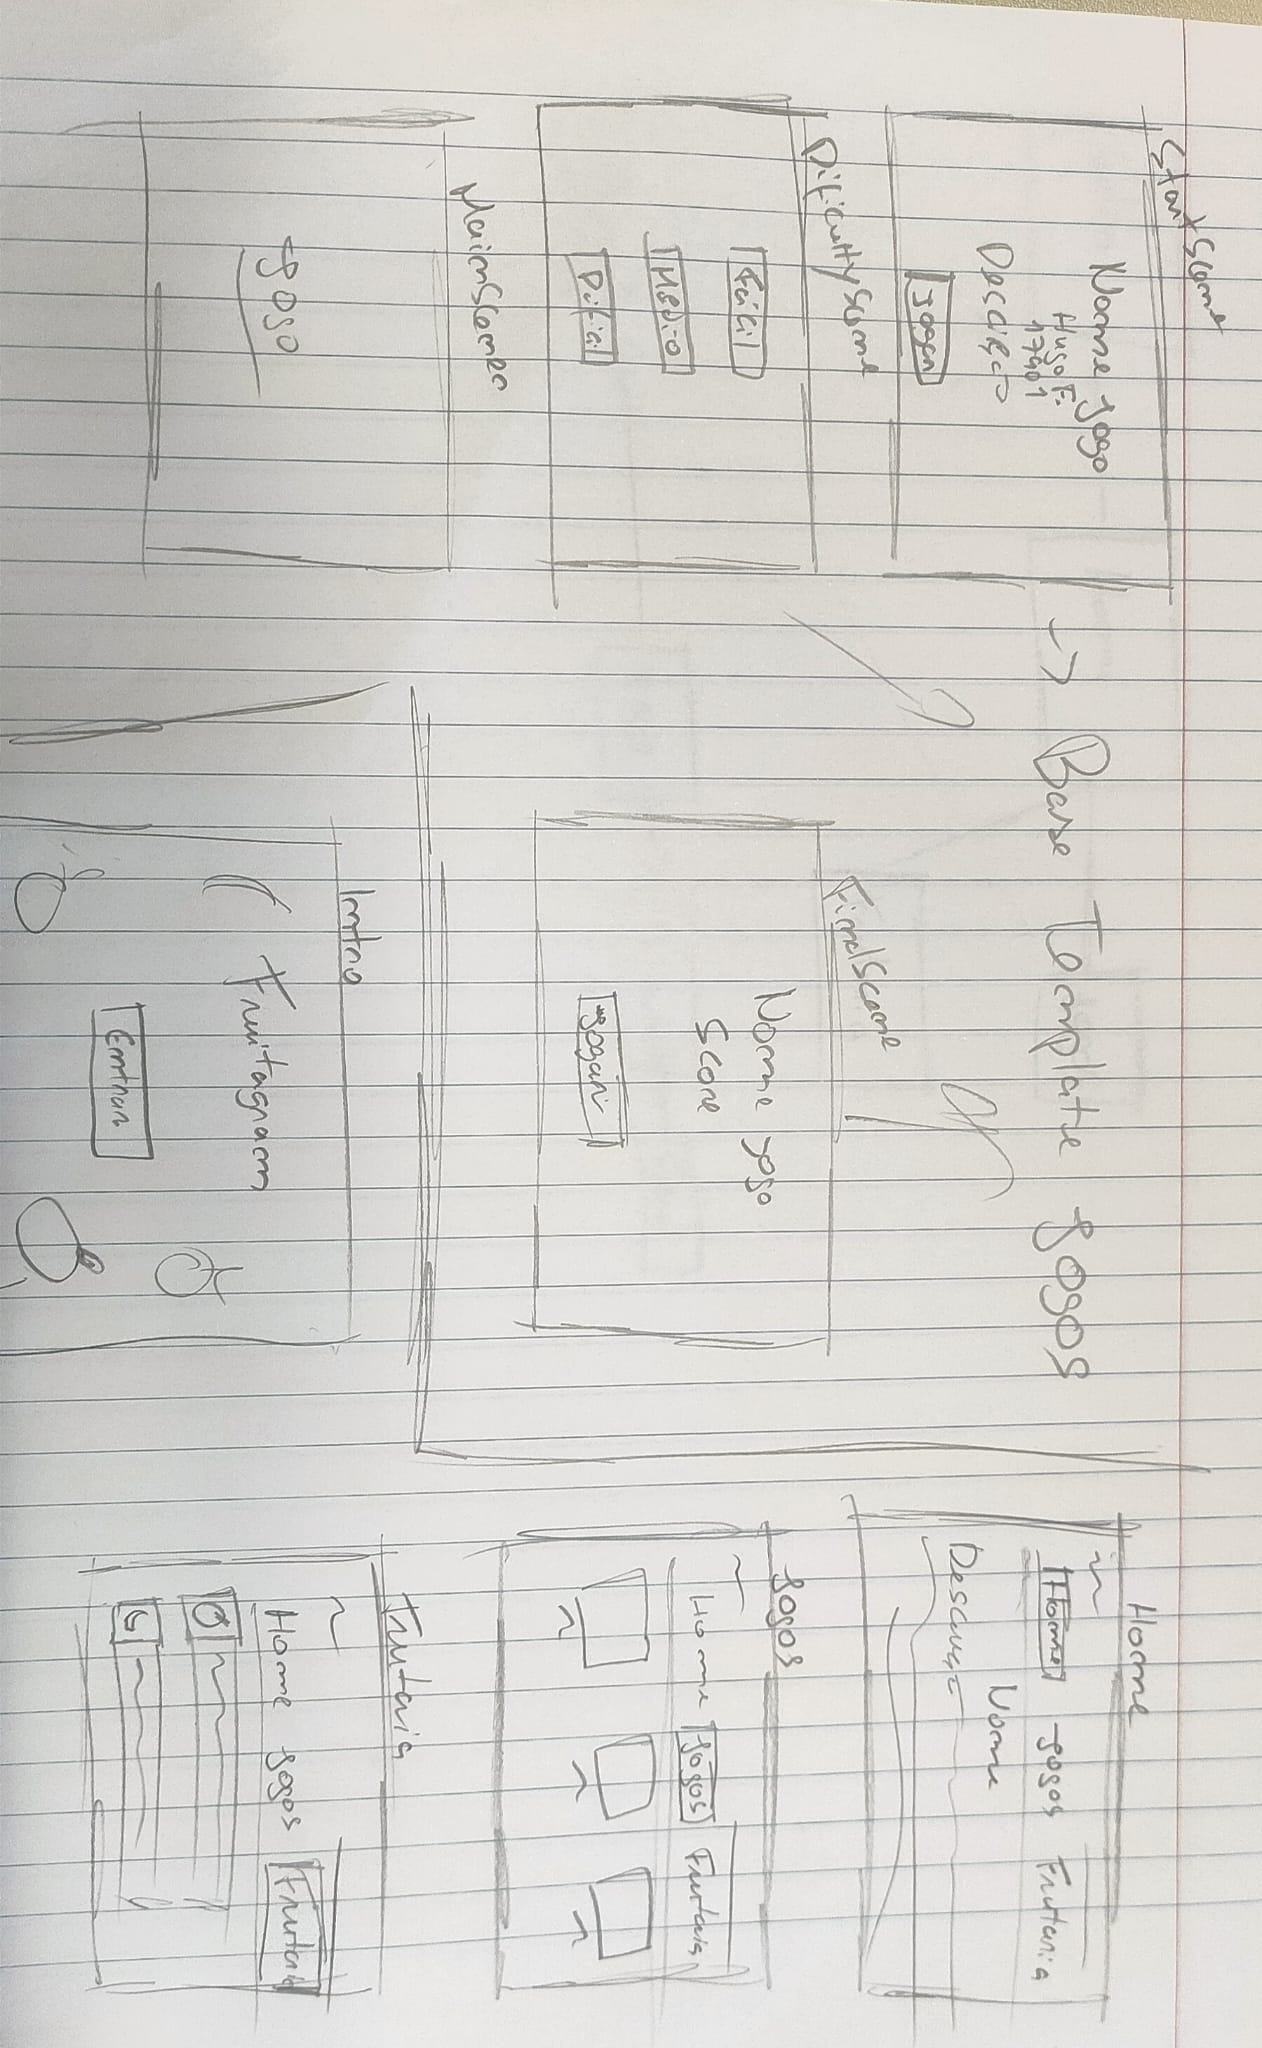 StartScene
Nome Jogo
Hugo F.
17901
Jogar
DificultyScene
Fácil
Médio
Difícil
MainScene
Jogo
Base Template Jogos
FinalScene
Nome Jogo
Score
Jogar
Intro
Fruitagram
Entrar
Home
Home Jogos Frutaria
Nome
Jogos
Home Jogos Frutaria
Frutaria
Home Jogos Frutaria